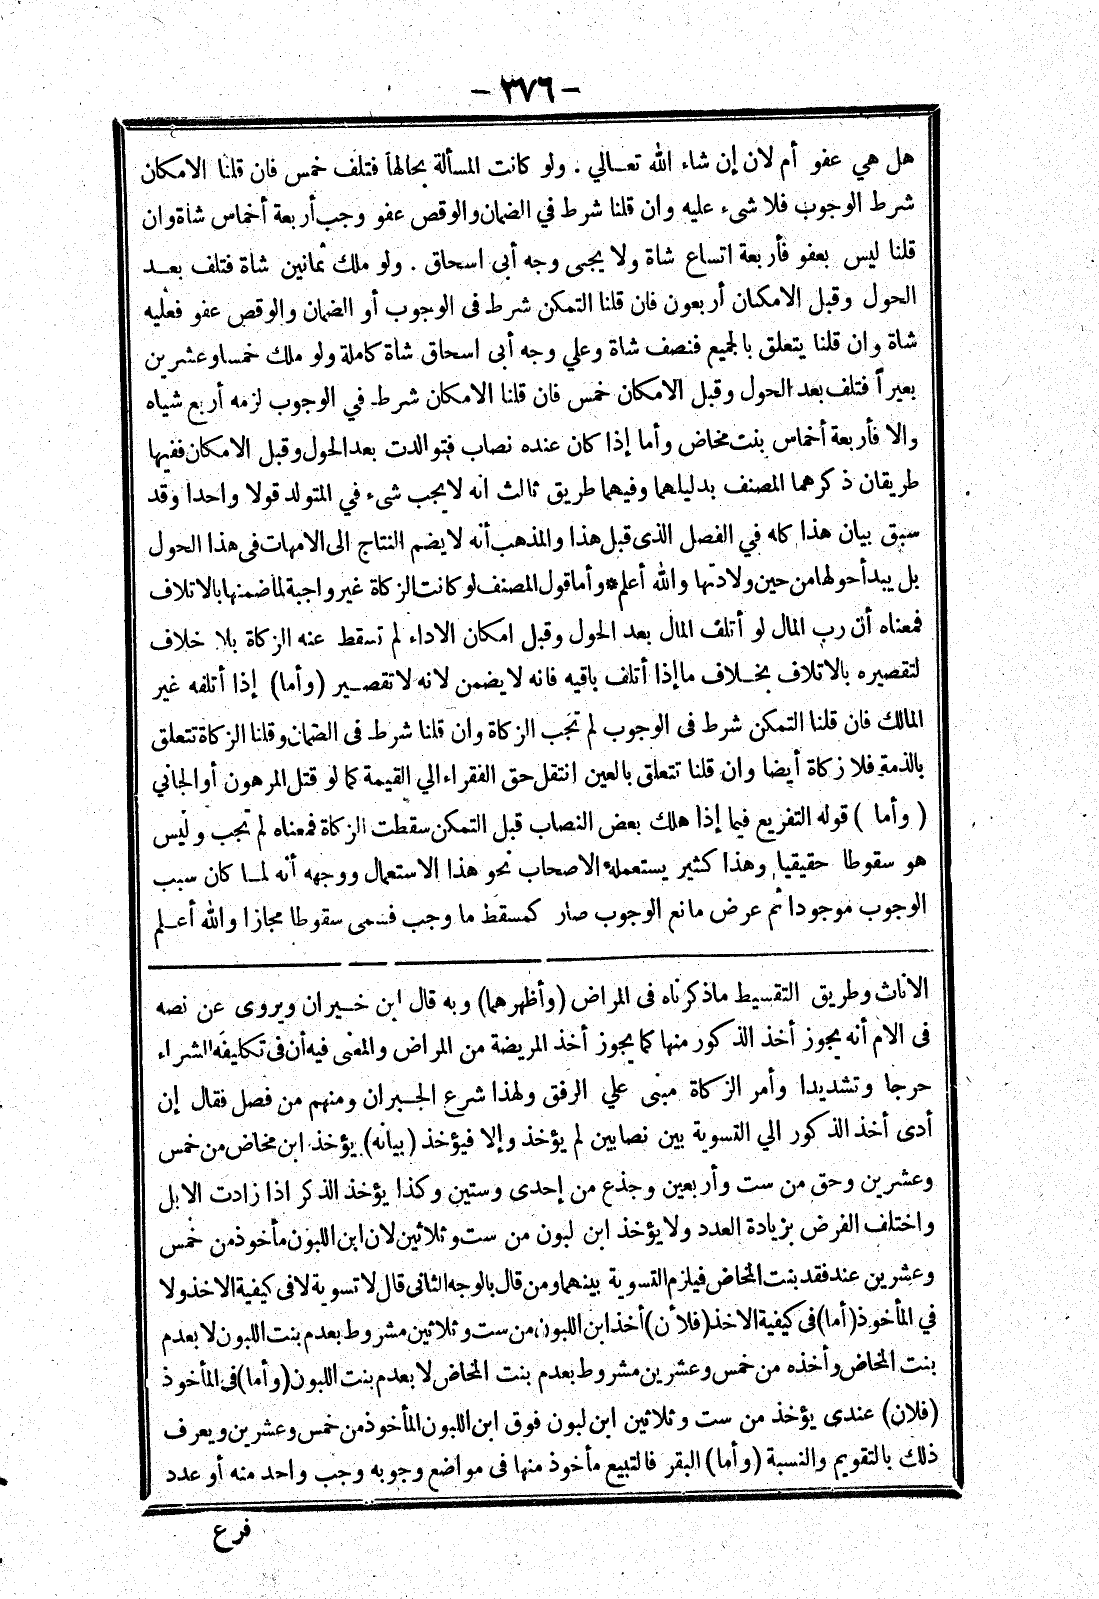 - ٣٧٦ -
هل هي عفو أم لان إن شاء الله تعالي . ولو كانت المسألة بحالها فتلف خمس فان قلنا الامكان
شرط الوجوب فلا شىء عليه وان قلنا شرط في الضمان والوقص عفو وجب أربعة أخماس شاة وان
قلنا ليس بعفو فأربعة اتساع شاة ولا يجىء وجه أبى اسحاق . ولو ملك ثمانين شاة فتلف بعد
الحول وقبل الامكان أربعون فان قلنا التمكن شرط فى الوجوب أو الضمان والوقص عفو فعليه
شاة وان قلنا يتعلق بالجميع فنصف شاة وعلي وجه أبى اسحاق شاة كاملة ولو ملك خمسا وعشرين
بعيراً فتلف بعد الحول وقبل الامكان خمس فان قلنا الامكان شرط في الوجوب لزمه أربع شياه
والا فأربعة أخماس بنت مخاض وأما إذا كان عنده نصاب فتوالدت بعد الحول وقبل الامكان ففيها
طريقان ذكرهما المصنف بدليلهما وفيهما طريق ثالث انه لا يجب شىء في المتولد قولا واحدا وقد
سبق بيان هذا كله في الفصل الذى قبل هذا والمذهب أنه لا يضم النتاج الى الامهات فى هذا الحول
بل يبدأ حولها من حين ولادتها والله أعلم * وأما قول المصنف لو كانت الزكاة غير واجبة لما ضمنها بالاتلاف
فمعناه أن رب المال لو أتلف المال بعد الحول وقبل امكان الاداء لم تسقط عنه الزكاة بلا خلاف
لتقصيره بالاتلاف بخلاف ما إذا أتلف باقيه فانه لا يضمن لانه لا تقصير (وأما) إذا أتلفه غير
المالك فان قلنا التمكن شرط فى الوجوب لم تجب الزكاة وان قلنا شرط فى الضمان وقلنا الزكاة تتعلق
بالذمة فلا زكاة أيضا وان قلنا تتعلق بالعين انتقل حق الفقراء الي القيمة كما لو قتل المرهون أو الجاني
( وأما ) قوله التفريع فيما إذا هلك بعض النصاب قبل التمكن سقطت الزكاة فمعناه لم تجب وليس
هو سقوطا حقيقيا وهذا كثير يستعمله الاصحاب نحو هذا الاستعمال ووجهه أنه لما كان سبب
الوجوب موجودا ثم عرض مانع الوجوب صار كمسقط ما وجب فسمى سقوطا مجازا والله أعلم
الاناث وطريق التقسيط ماذكرناه فى المراض (وأظهرهما) وبه قال ابن خيران ويروى عن نصه
فى الام أنه يجوز أخذ الذكور منها كما يجوز أخذ المريضة من المراض والمعنى فيه أن فى تكليفه الشراء
حرجا وتشديدا وأمر الزكاة مبنى علي الرفق ولهذا شرع الجبران ومنهم من فصل فقال إن
أدى أخذ الذكور الي التسوية بين نصابين لم يؤخذ وإلا فيؤخذ (بيانه) يؤخذ ابن مخاض من خمس
وعشرين وحق من ست وأربعين وجذع من إحدى وستين وكذا يؤخذ الذكر اذا زادت الابل
واختلف الفرض بزيادة العدد ولا يؤخذ ابن لبون من ست وثلاثين لان ابن اللبون مأخوذ من خمس
وعشرين عند فقد بنت المخاض فيلزم التسوية بينهما ومن قال بالوجه الثانى قال لا تسوية لا فى كيفية الاخذ ولا
في المأخوذ (أما) فى كيفية الاخذ (فلأن) أخذ ابن اللبون من ست وثلاثين مشروط بعدم بنت اللبون لا بعدم
بنت المخاض وأخذه من خمس وعشرين مشروط بعدم بنت المخاض لا بعدم بنت اللبون (وأما) فى المأخوذ
(فلان) عندى يؤخذ من ست وثلاثين ابن لبون فوق ابن اللبون المأخوذ من خمس وعشرين ويعرف
ذلك بالتقويم والنسبة (وأما) البقر فالتبيع مأخوذ منها فى مواضع وجوبه وجب واحد منه أو عدد
فرع